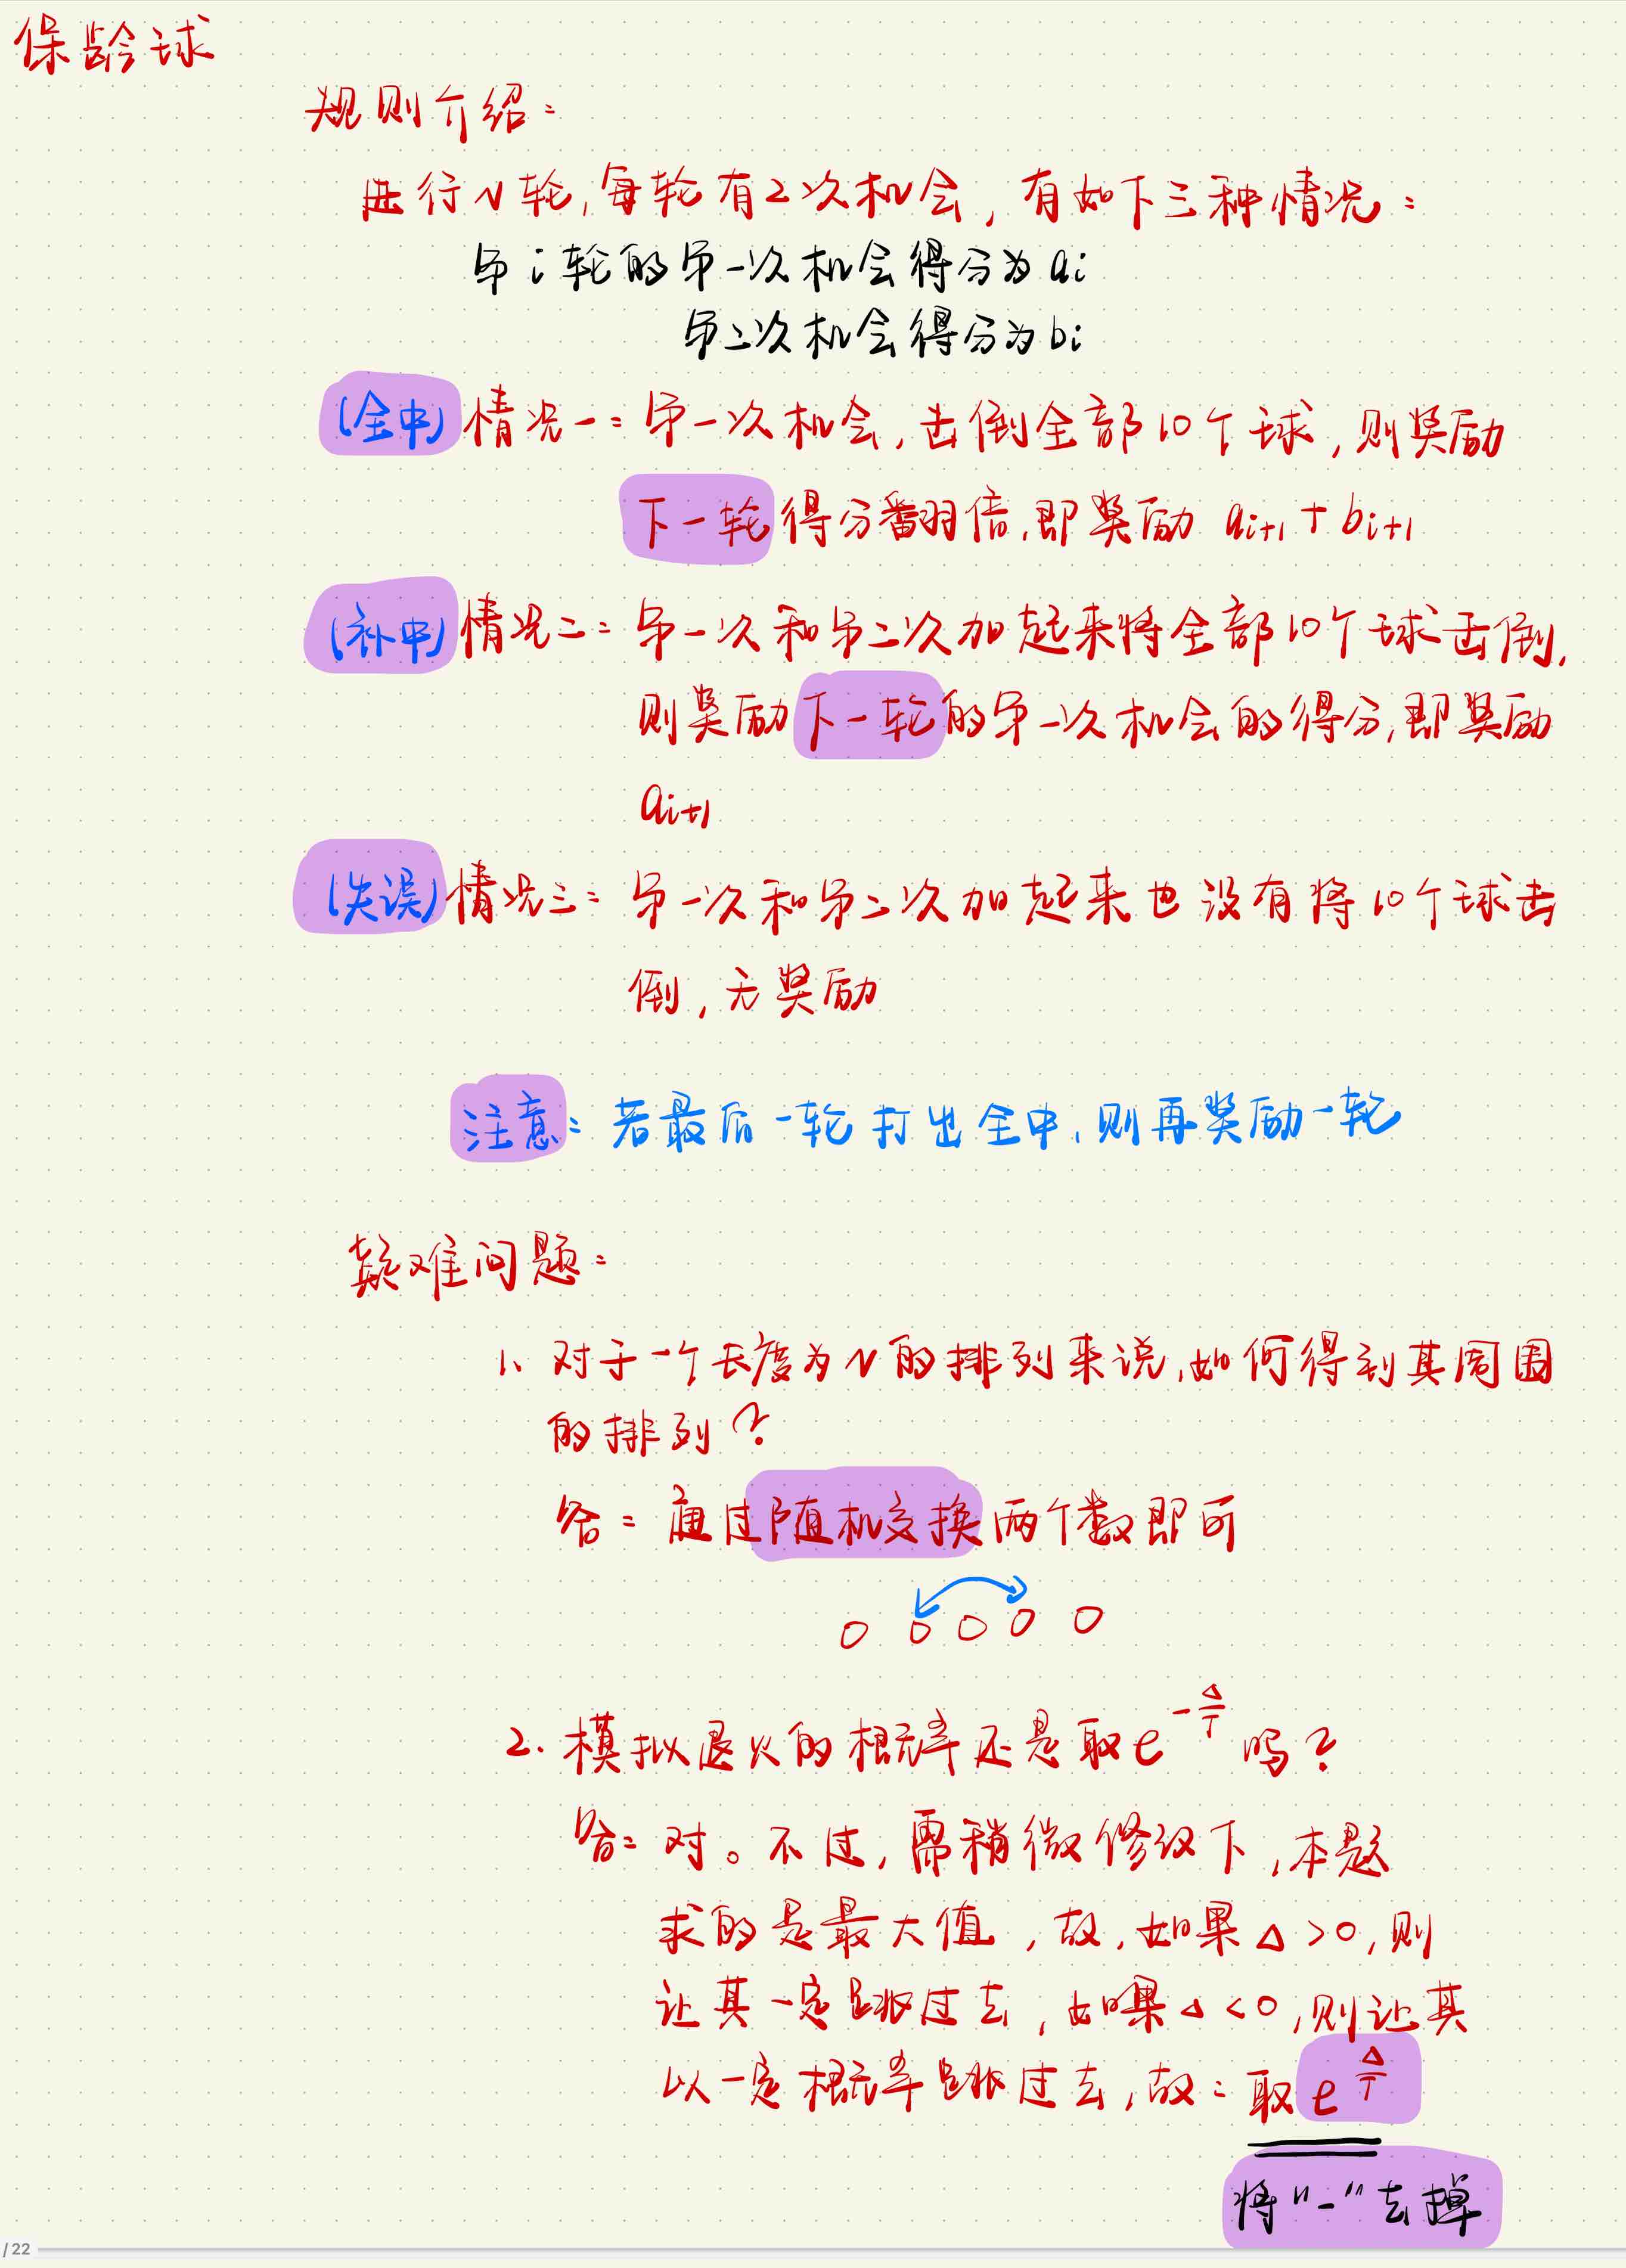 保龄球
规则介绍:
进行N轮,每轮有2次机会,有如下三种情况:
第i轮的第一次机会得分为ai
第二次机会得分为bi
(全中)情况一:第一次机会,击倒全部10个球,则奖励
下一轮得分翻倍,即奖励 ai+1+bi+1
(补中)情况二:第一次和第二次加起来将全部10个球击倒,
则奖励下一轮的第一次机会的得分,即奖励
ai+1
(失误)情况三:第一次和第二次加起来也没有将10个球击
倒,无奖励
注意:若最后一轮打出全中,则再奖励一轮
疑难问题:
1、对于一个长度为N的排列来说,如何得到其周围
的排列?
答:通过随机交换两个数即可
0 0 0 0 0
2.模拟退火的概率还是取e^-Δ/T吗?
答:对。不过,需稍微修改下,本题
求的是最大值,故,如果Δ>0,则
让其一定跳过去,如果Δ<0,则让其
以一定概率跳过去,故:取e^Δ/T
将"-"去掉
/22